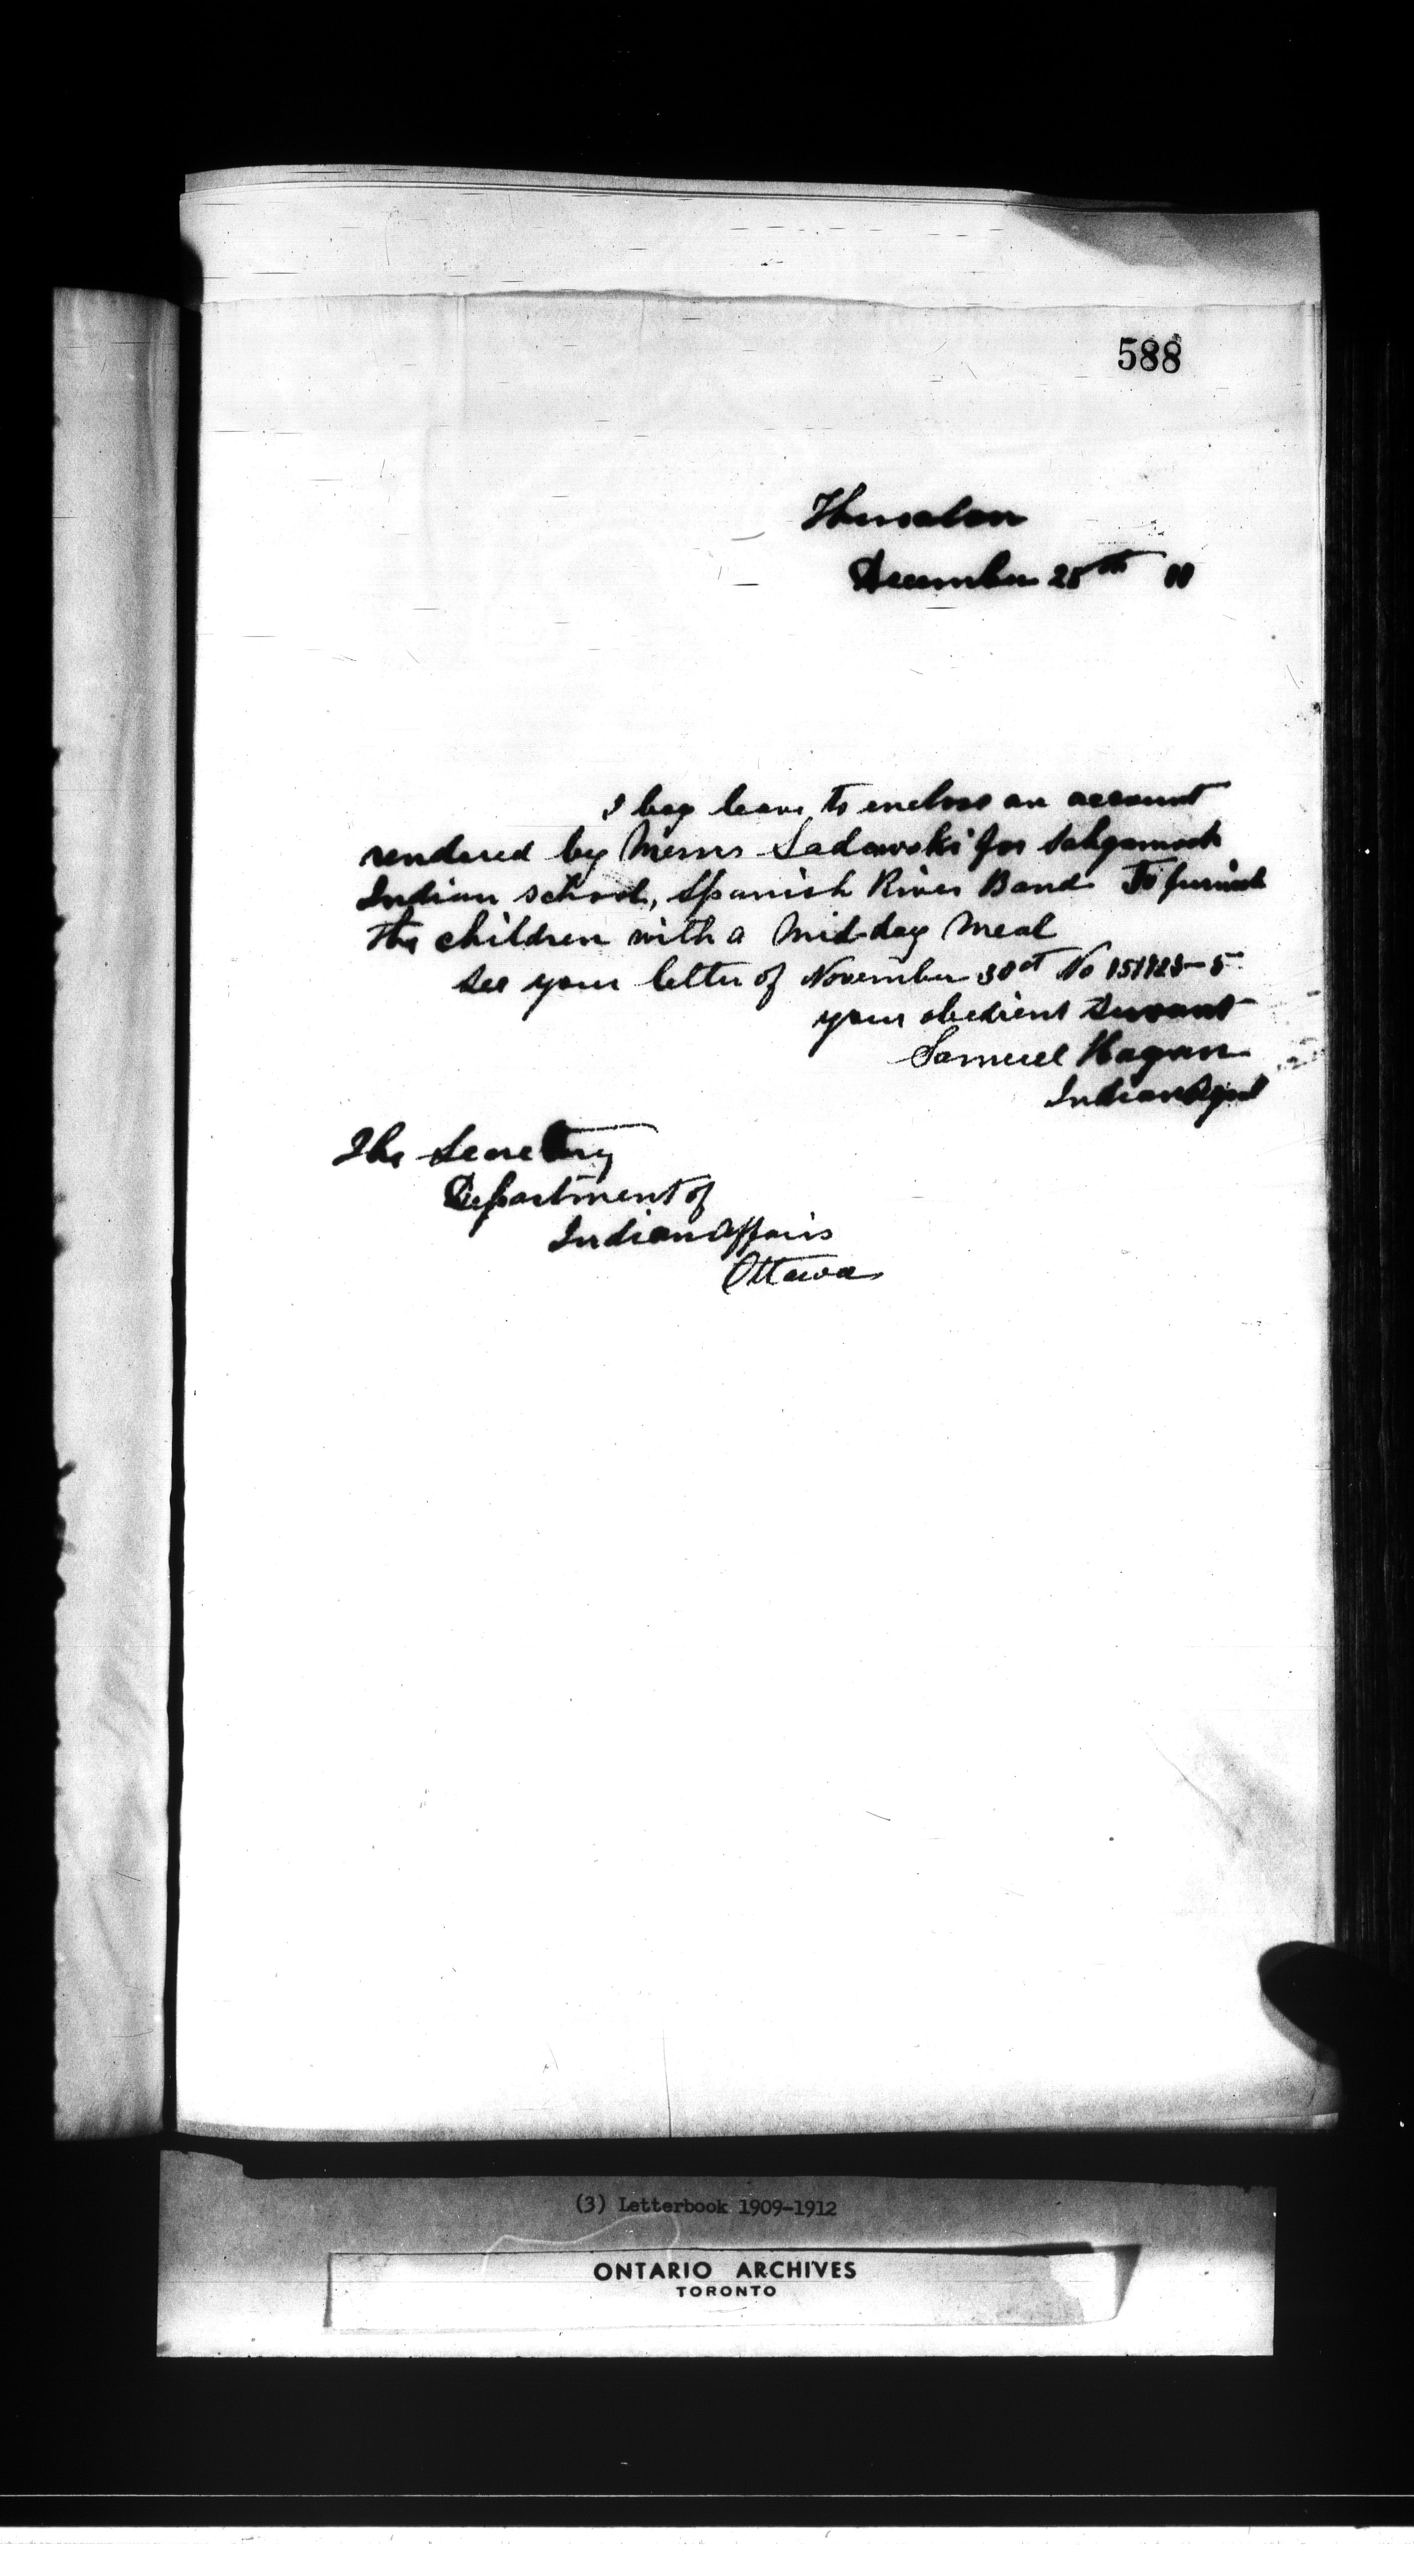 588
Thessalon
December 28th 11
I beg leave to enclose an account
rendered by Messrs Sadowski for Sahgamook
Indian school, Spanish River Band To furnish
the children with a Mid-day Meal
See your letter of November 30th No
your obedient Servant
Samuel Hagan
Indian Agent
The Secretary
Department of
Indian Affairs
Ottawa
(3) Letterbook 1909-1912
ONTARIO ARCHIVES
TORONTO